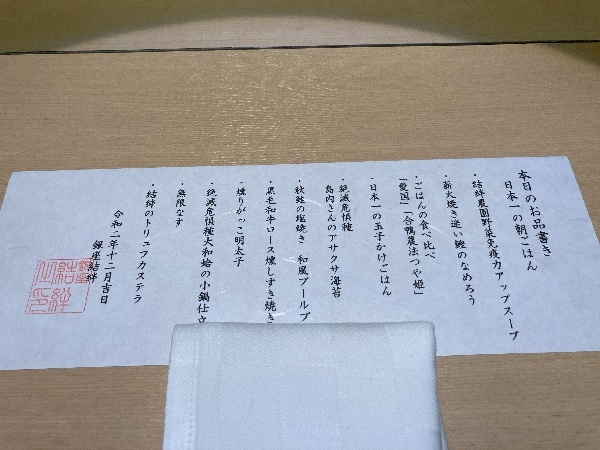 本日のお品書き
日本一の朝ごはん
・結絆農園野菜免疫力アップスープ
・薪火焼き迷い鰹のなめろう
・ごはんの食べ比べ
「愛国」「合鴨農法つや姫」
・日本一の玉子かけごはん
・絶滅危惧種
島内さんのアサクサ海苔
・秋鮭の塩焼き 和風ブールブ
・黒毛和牛ロース燻しすき焼き
・燻りがっこ明太子
・絶滅危惧種大和蛤の小鍋仕立
・無限なす
・結絆のトリュフカステラ
令和二年十二月吉日
銀座結絆
銀座
結絆
之印